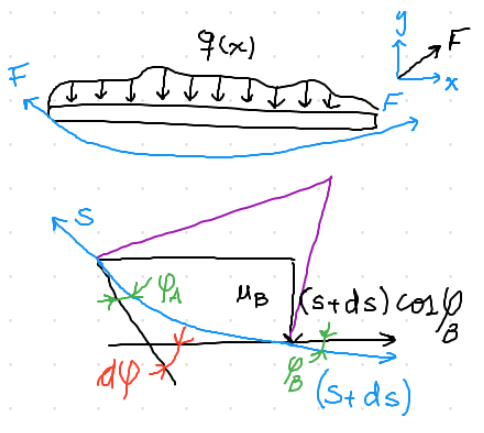 q(x)
y
F
x
F
F
S
φA
μB
(s+ds) cosφB
dφ
φB
(s+ds)